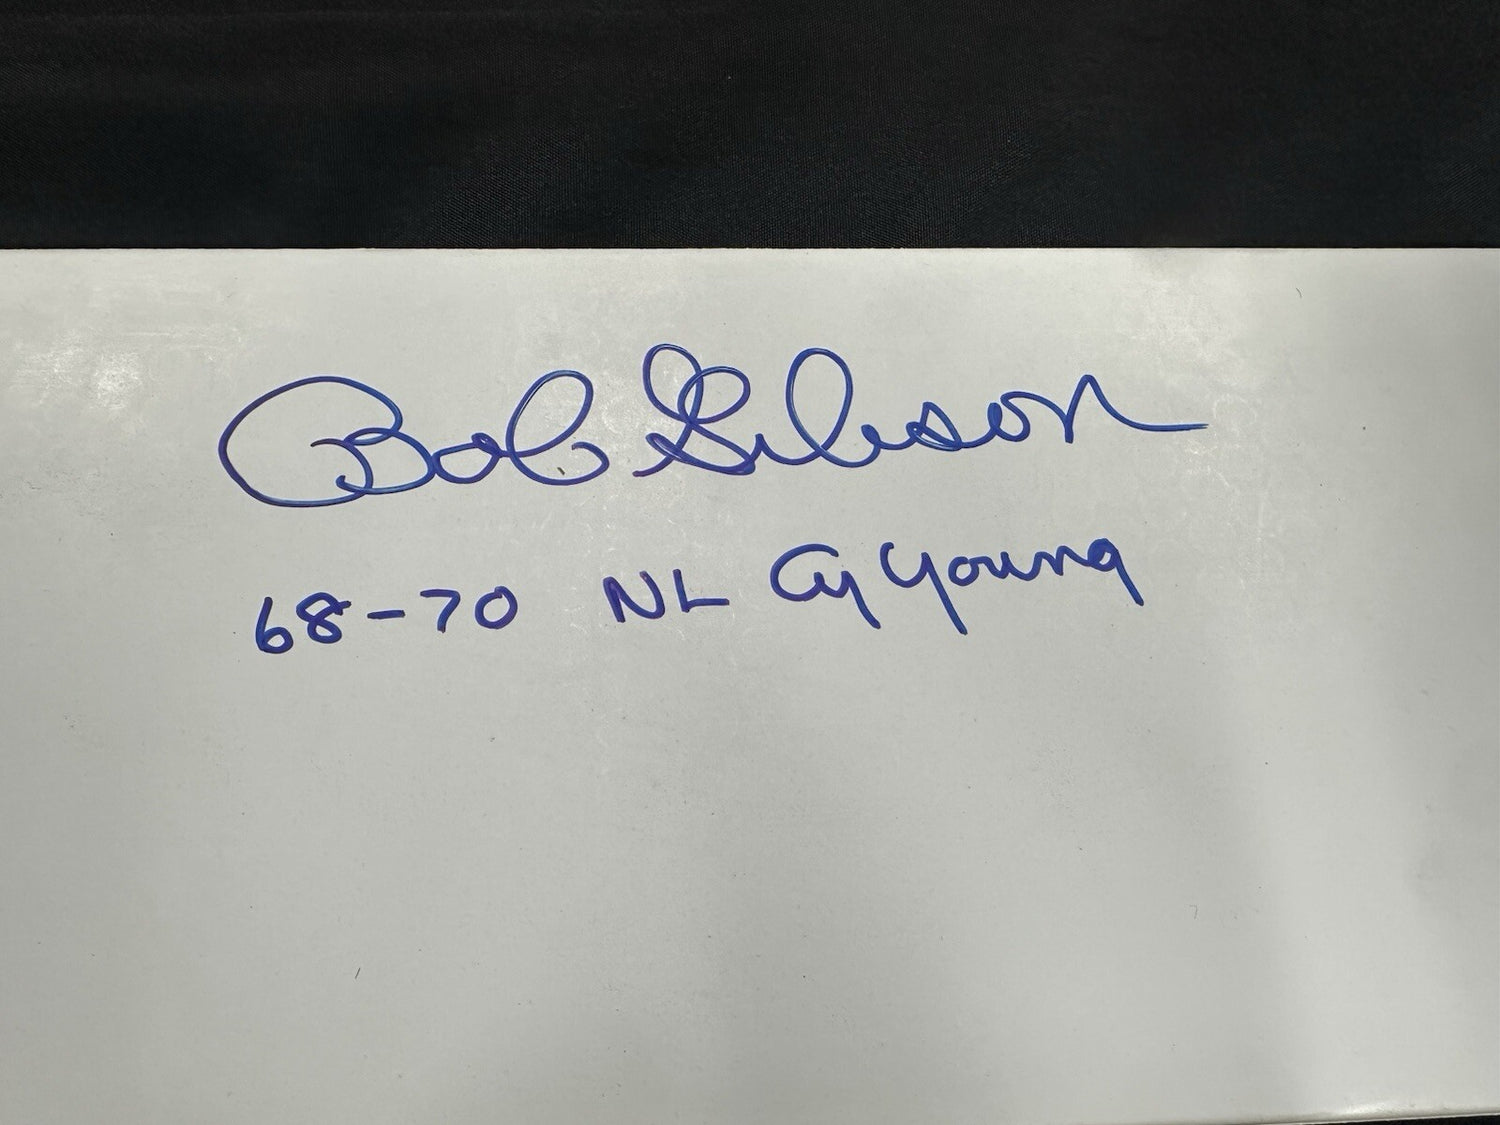 Bob Gibson
68-70 NL Cy Young